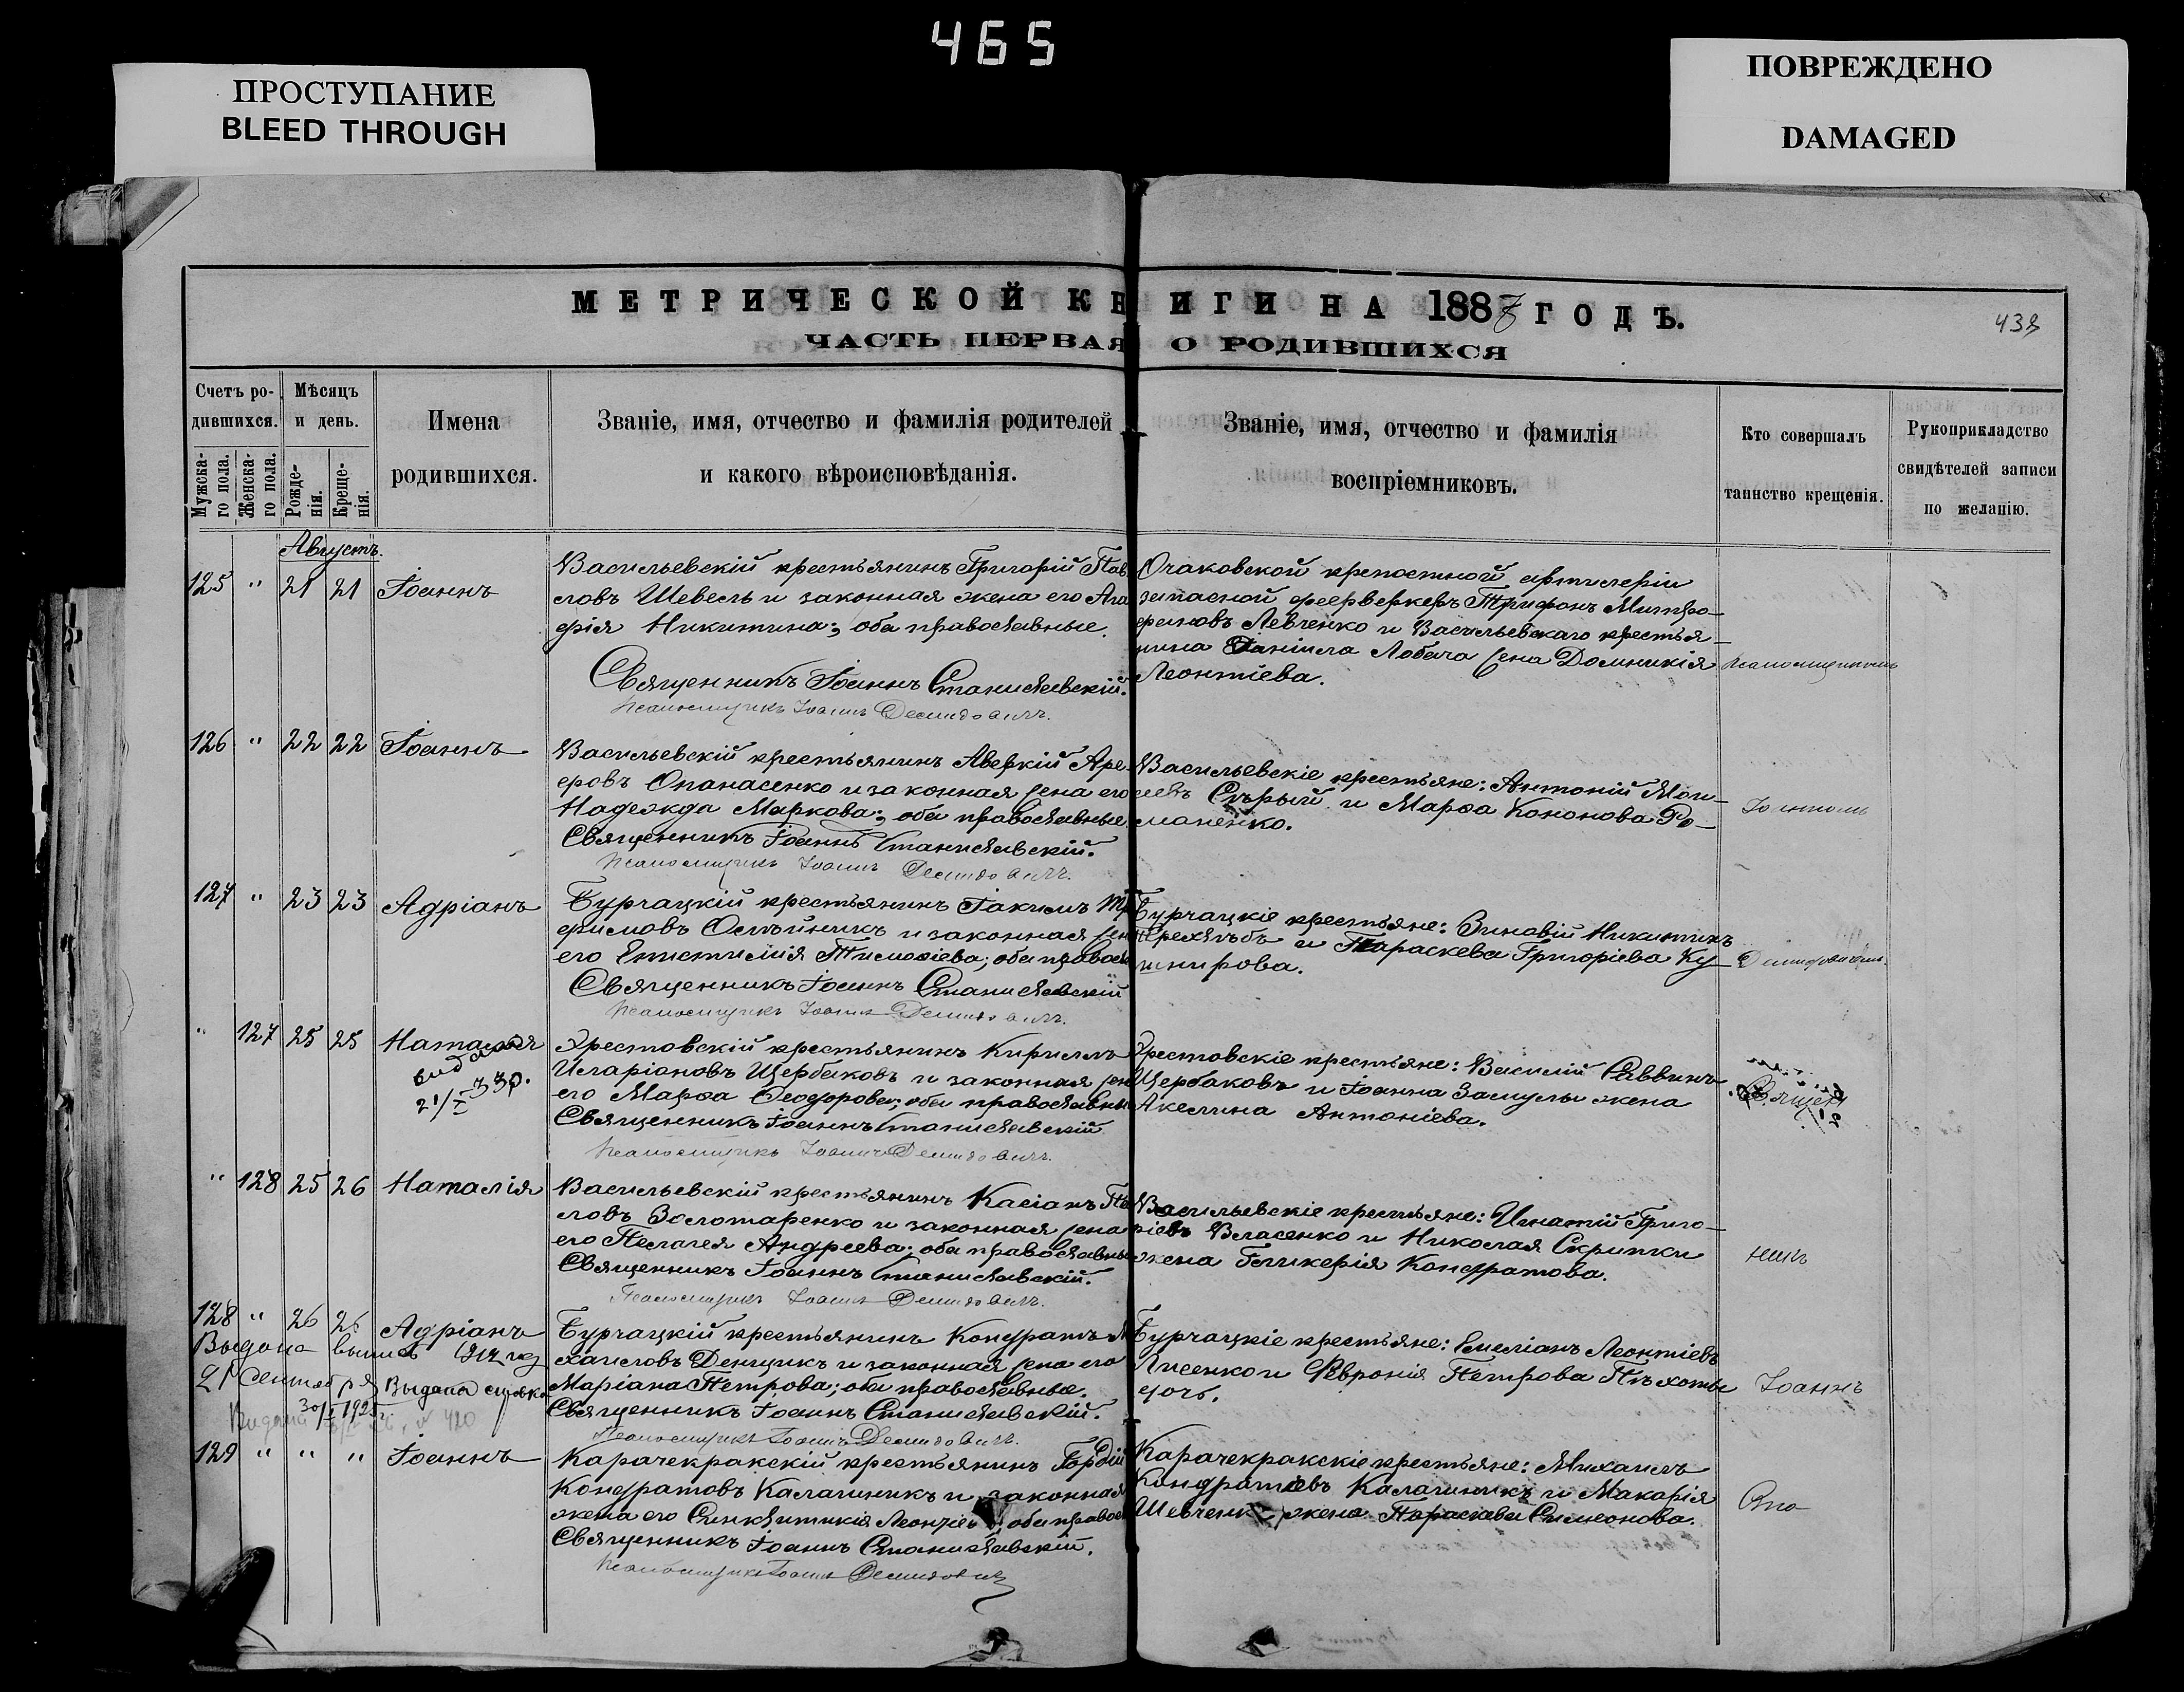 465
ПРОСТУПАНИЕ
BLEED THROUGH
ПОВРЕЖДЕНО
DAMAGED
МЕТРИЧЕСКОЙ КНИГИ НА 1887 ГОДЪ.
438
ЧАСТЬ ПЕРВАЯ О РОДИВШИХСЯ
Счетъ родившихся.
Мужскаго пола.
Женскаго пола.
Мѣсяцъ и день.
Рожденія.
Крещенія.
Имена родившихся.
Званіе, имя, отчество и фамилія родителей
и какого вѣроисповѣданія.
Званіе, имя, отчество и фамилія
воспріемниковъ.
Кто совершалъ
таинство крещенія.
Рукоприкладство
свидѣтелей записи
по желанію.
Августъ.
125 " 21 21 Іоаннъ
Васильевскій крестьянинъ Григорій Пав
ловъ Шевель и законная жена его Ага
фія Никитина; оба православные.
Священникъ Іоаннъ Станиславскій.
Псаломщикъ Іоаннъ Демидовичъ.
Очаковской крепостной артилеріи
запасной феерверкеръ Трифонъ Митро-
фановъ Левченко и Васильевскаго крестья-
нина Даніила Лобача жена Домникія
Леонтіева.
126 " 22 22 Іоаннъ
Васильевскій крестьянинъ Аверкій Аре
еровъ Опанасенко и законная жена его
Надежда Маркова; оба православные.
Священникъ Іоаннъ Станиславскій.
Псаломщикъ Іоаннъ Демидовичъ.
Васильевскіе крестьяне: Антоній Мои-
сеевъ Сѣрый и Марѳа Кононова Ро-
маненко.
127 " 23 23 Адріанъ
Бурчацкій крестьянинъ Іакимъ Тр
фимовъ Олѣйникъ и законная жена
его Епистимія Тимоѳіева; оба правосл
Священникъ Іоаннъ Станиславскій
Псаломщикъ Іоаннъ Демидовичъ.
Бурчацкіе крестьяне: Зиновій Никитинъ
Трехлѣбъ и Параскева Григоріева Ку
шнирова.
" 127 25 25 Наталія
21/I 33р.
Хрестовскій крестьянинъ Кириллъ
Иларіоновъ Щербаковъ и законная жена
его Марѳа Ѳеодорова; оба православны
Священникъ Іоаннъ Станиславскій
Псаломщикъ Іоаннъ Демидовичъ.
Хрестовскіе крестьяне: Василій Саввинъ
Щербаковъ и Іоанна Замулы жена
Акелина Антоніева.
" 128 25 26 Наталія
Васильевскій крестьянинъ Касіанъ Па
ловъ Золотаренко и законная жена
его Пелагея Андреева; оба православны
Священникъ Іоаннъ Станиславскій.
Псаломщикъ Іоаннъ Демидовичъ.
Васильевскіе крестьяне: Игнатій Григо-
ріевъ Власенко и Николая Скрипки
жена Гликерія Кондратова.
никъ
128 " 26 26 Адріанъ
Выдана
21 Сентября Выдана справка
30/I 1925
Бурчацкій крестьянинъ Кондратъ М
хаиловъ Денщикъ и законная жена его
Маріана Петрова; оба православные.
Священникъ Іоаннъ Станиславскій.
Псаломщикъ Іоаннъ Демидовичъ.
Бурчацкіе крестьяне: Емеліанъ Леонтіевъ
Лисенко и Февронія Петрова Пѣхоты
дочь.
Іоаннъ
129 " " " Іоаннъ
Карачекракскій крестьянинъ Гордій
Кондратовъ Калачникъ и законная
жена его Синклитикія Леонтіева; оба правосл
Священникъ Іоаннъ Станиславскій.
Псаломщикъ Іоаннъ Демидовичъ
Карачекракскіе крестьяне: Михаилъ
Кондратіевъ Калачникъ и Макарія
Шевченка жена Параскева Симеонова.
Ста